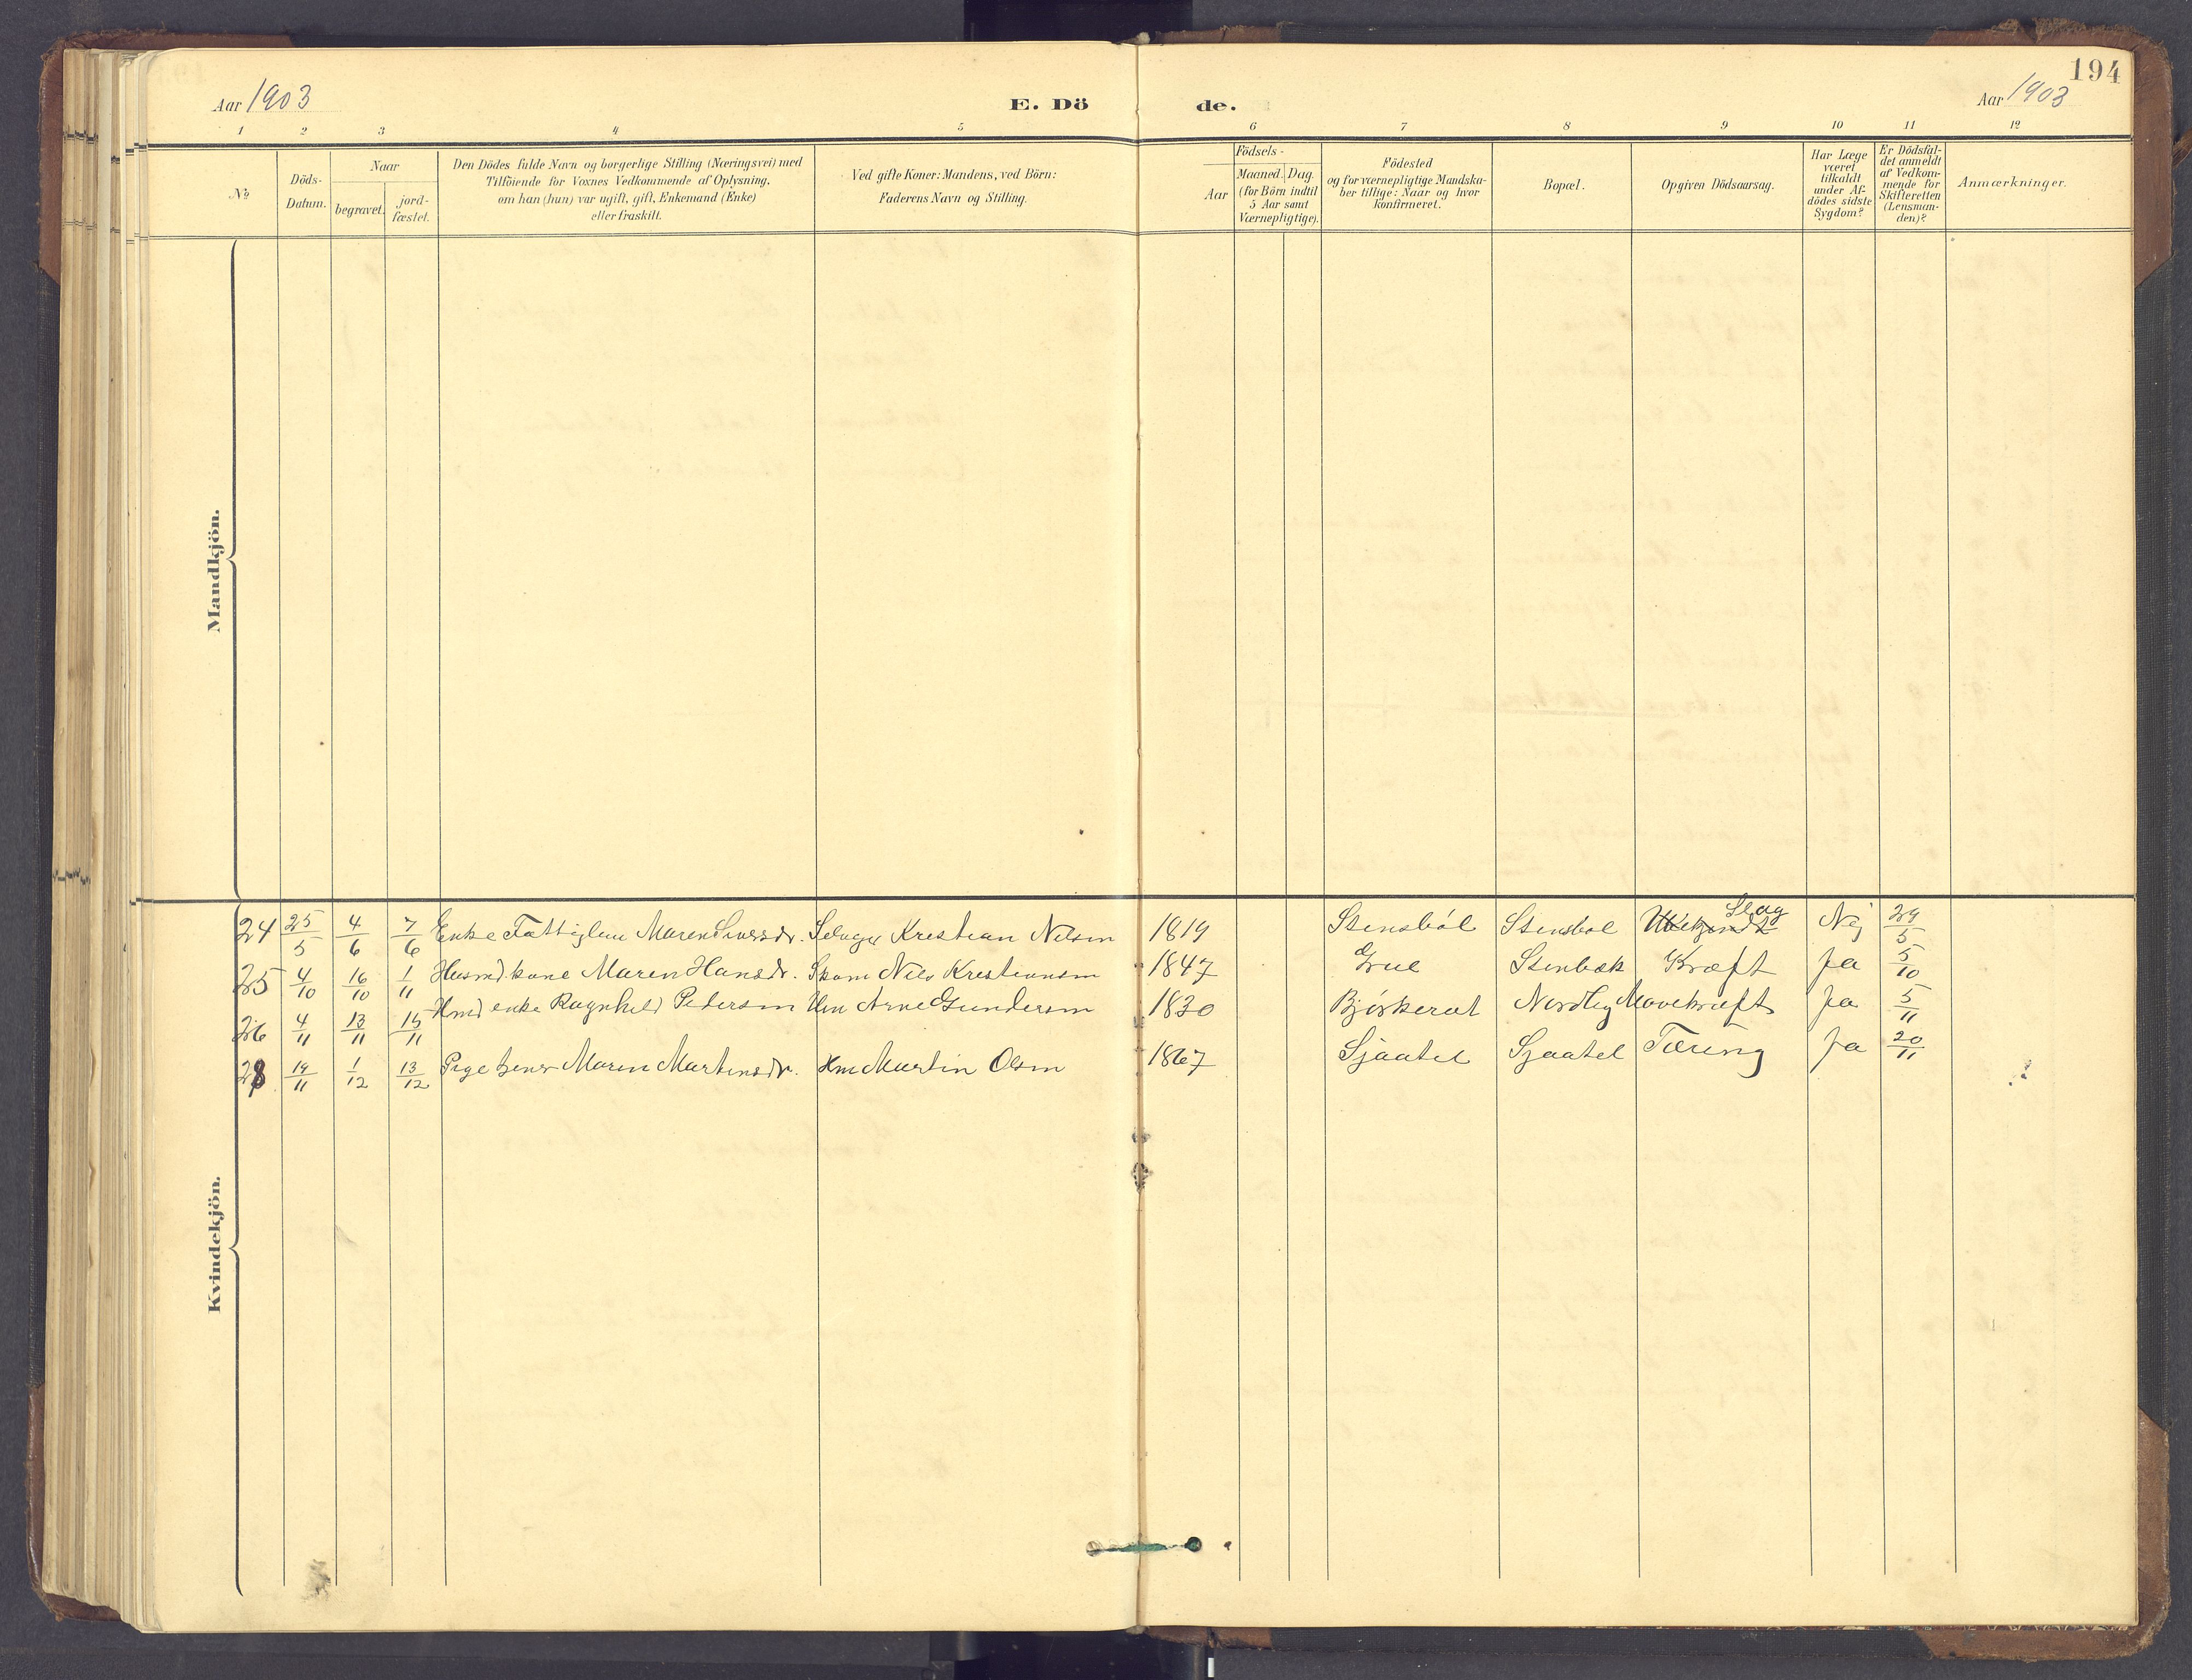 194
Aar 1903
E. Dö
de.
Aar 1903
1 2 3 4 5 6 7 8 9 10 11 12
No
Döds-
Datum.
Naar
begravet.
jord-
fæstet.
Den Dödes fulde Navn og borgerlige Stilling (Næringsvei) med
Tilföiende for Voxnes Vedkommende af Oplysning,
om han (hun) var ugift, gift, Enkemand (Enke)
eller fraskilt.
Ved gifte Koner: Mandens, ved Börn:
Faderens Navn og Stilling.
Födsels-
Aar
Maaned. Dag.
(for Börn indtil
5 Aar samt
Værnepligtige).
Födested
og for værnepligtige Mandska-
ber tillige: Naar og hvor
konfirmeret.
Bopæl.
Opgiven Dödsaarsag.
Har Læge
været
tilkaldt
under Af-
dödes sidste
Sygdom?
Er Dödsfal-
det anmeldt
af Vedkom-
mende for
Skifteretten
(Lensman-
den)?
Anmærkninger.
Mandkjön.
Kvindekjön.
Slag
24 25/5 4/6 7/6 Enke Fattiglem Maren Iversdr. Selveger Kristian Nilsen 1819 Stensböl Stensbøl Ubekjendt Nej 29/5
25 4/10 16/10 1/11 Husmd.kone Maren Hansdr. Skom Nils Kristiansen 1847 Grue Stenbæk Kræft Ja 5/10
26 4/11 13/11 15/11 Hmd enke Ragnhild Pedersen Hm Arne Gundersen 1830 Björkerud Nordby Mavekræft Ja 5/11
28 19/11 1/12 13/12 Pige tjener Maren Martinsdr. Hm Martin Olsen 1867 Sjaatel Sjaatel Tæring Ja 20/11